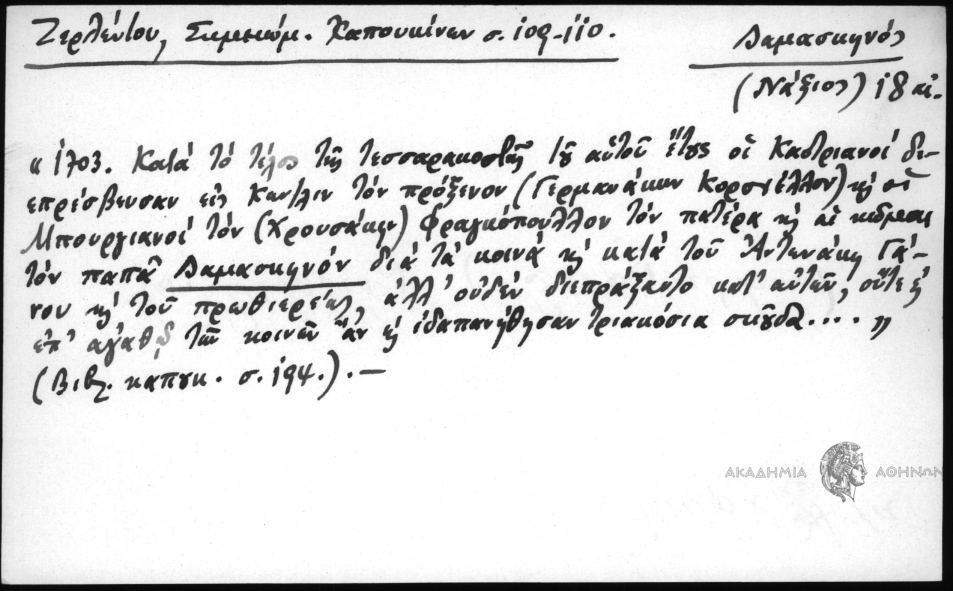 Ζερλέντου, Σημειώμ. Καπουκίνων σ. 109-110.
Δαμασκηνός
(Νάξιος) 18 αἰ.
« 1703. Κατά τό τέλος τῆς τεσσαρακοστῆς τȣ͂ αὐτοῦ ἔτȣς οἱ Καστριανοί δι-
επρέσβευσαν εἰς Κων/λιν τόν πρόξενον (Γερμανάκην Κορονέλλον) κ̀ οἱ
Μπουργιανοί τόν (Χρουσάκην) Φραγκόπουλλον τόν πατέρα κ̀ αἱ κῶμαι
τόν παπᾶ Δαμασκηνόν διά τά κοινά κ̀ κατά τοῦ Ἀντωνάκη Γά-
κ̀ τοῦ πρωθιερέως, ἀλλ' οὐδέν διεπράξαντο κατ' αὐτῶν, οὔτε
ἐπ' ἀγαθῷ τῶν κοινῶν ἄν κ̀ ἐδαπανήθησαν τριακόσια σκȣ͂δα.... »
(Βιβλ. καπȣκ. σ. 194.). —
ΑΚΑΔΗΜΙΑ ΑΘΗΝΩΝ